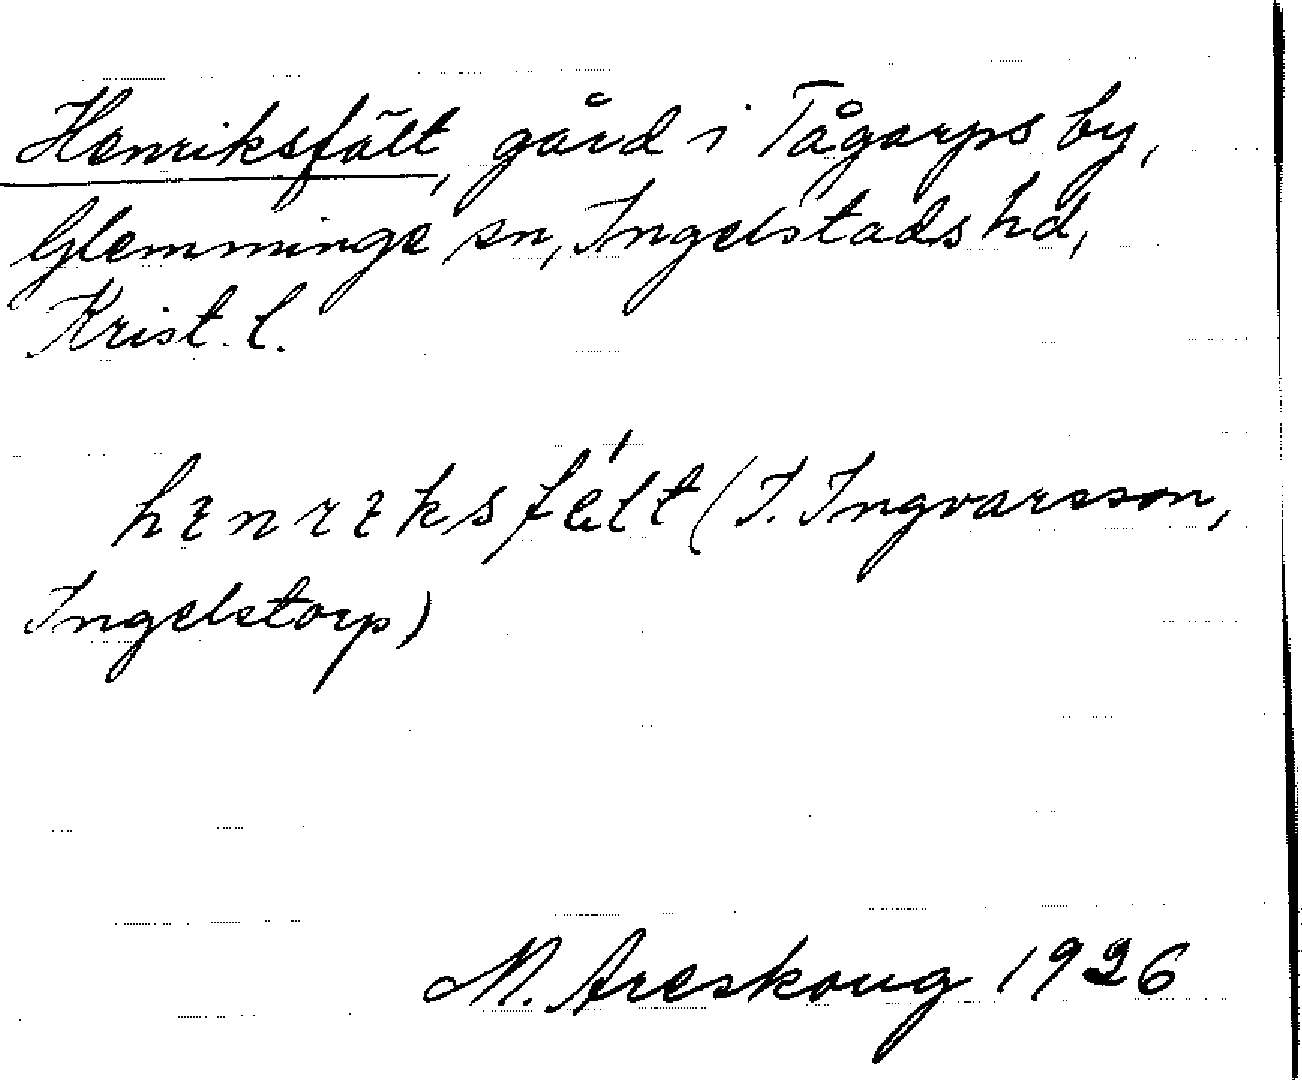 Henriksfält, gård i Tågarps by,
Glemminge sn, Ingelstads hd,
Krist. l.
(I. Ingvarsson,
Ingelstorp)
N. Areskoug 1926